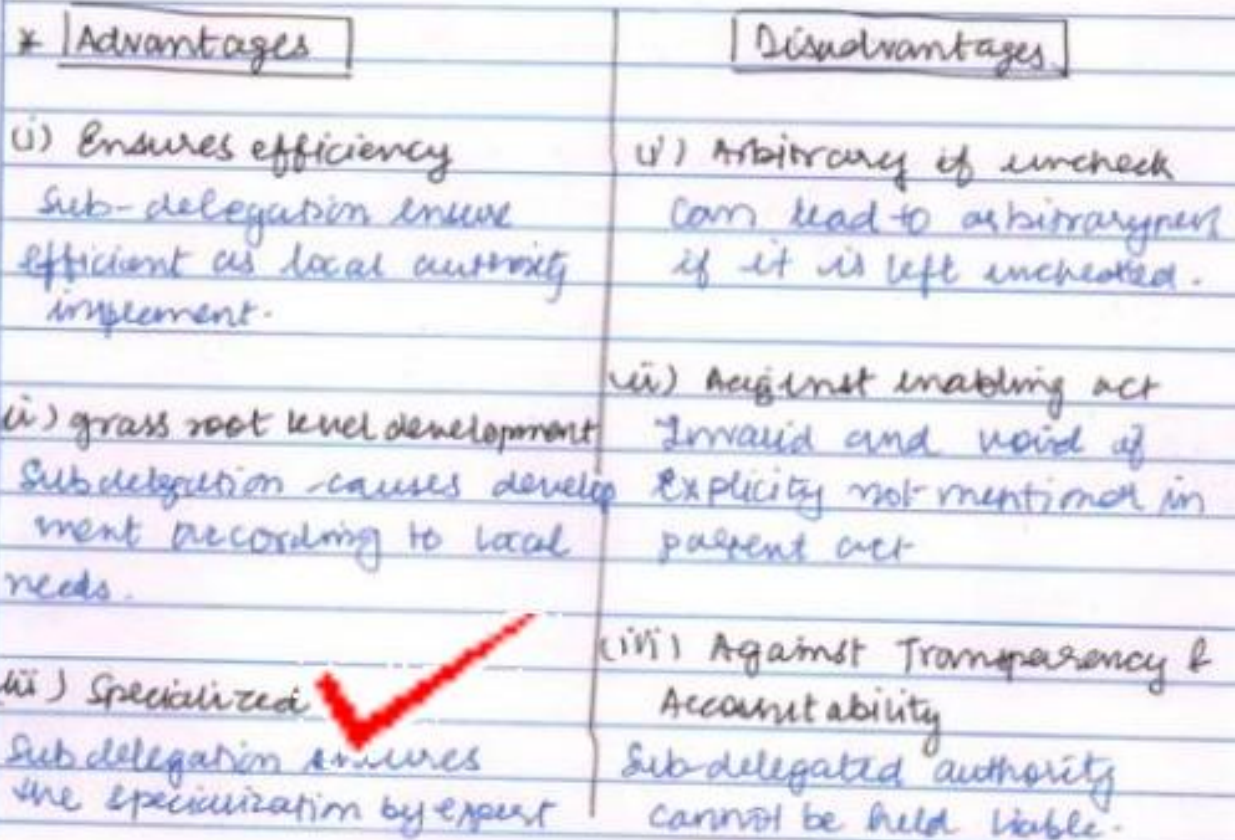 * Advantages
(i) Ensures efficiency
Sub-delegation ensure
efficient as local authority
implement.
(ii) grass root level development
Subdelegation causes develop
ment according to local
needs.
(iii) Specialized
Subdelegation ensures
the specialization by expert
Disadvantages
(i) Arbitrary if uncheck
can lead to arbitraryness
if it is left unchecked.
(ii) Against enabling act
Invalid and void if
Explicity not mentioned in
parent act
(iii) Against Transparency &
Accountability
Sub-delegated authority
cannot be held liable.